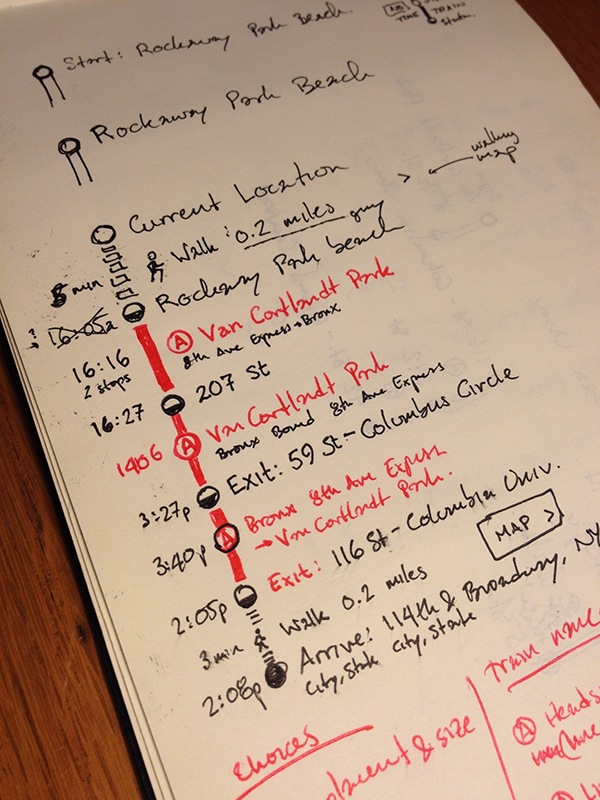 Start: Rockaway Park Beach
TIME TRAIN
Rockaway Park Beach
walking
map
Current Location >
5 min Walk: 0.2 miles
Rockaway Park beach
16:05a
A Van Cortlandt Park
8th Ave Express → Bronx
16:16
2 stops
16:27 207 St
A Van Cortlandt Park
Bronx Bound 8th Ave Express
1406
Exit: 59 St - Columbus Circle
3:27p
A Bronx 8th Ave Express
→ Van Cortlandt Park.
3:40p
Exit: 116 St - Columbia Univ.
MAP >
2:05p
3 min Walk 0.2 miles
Arrive: 114th & Broadway, NY
2:08p City, State City, State
choices
& size
Train name
A
A